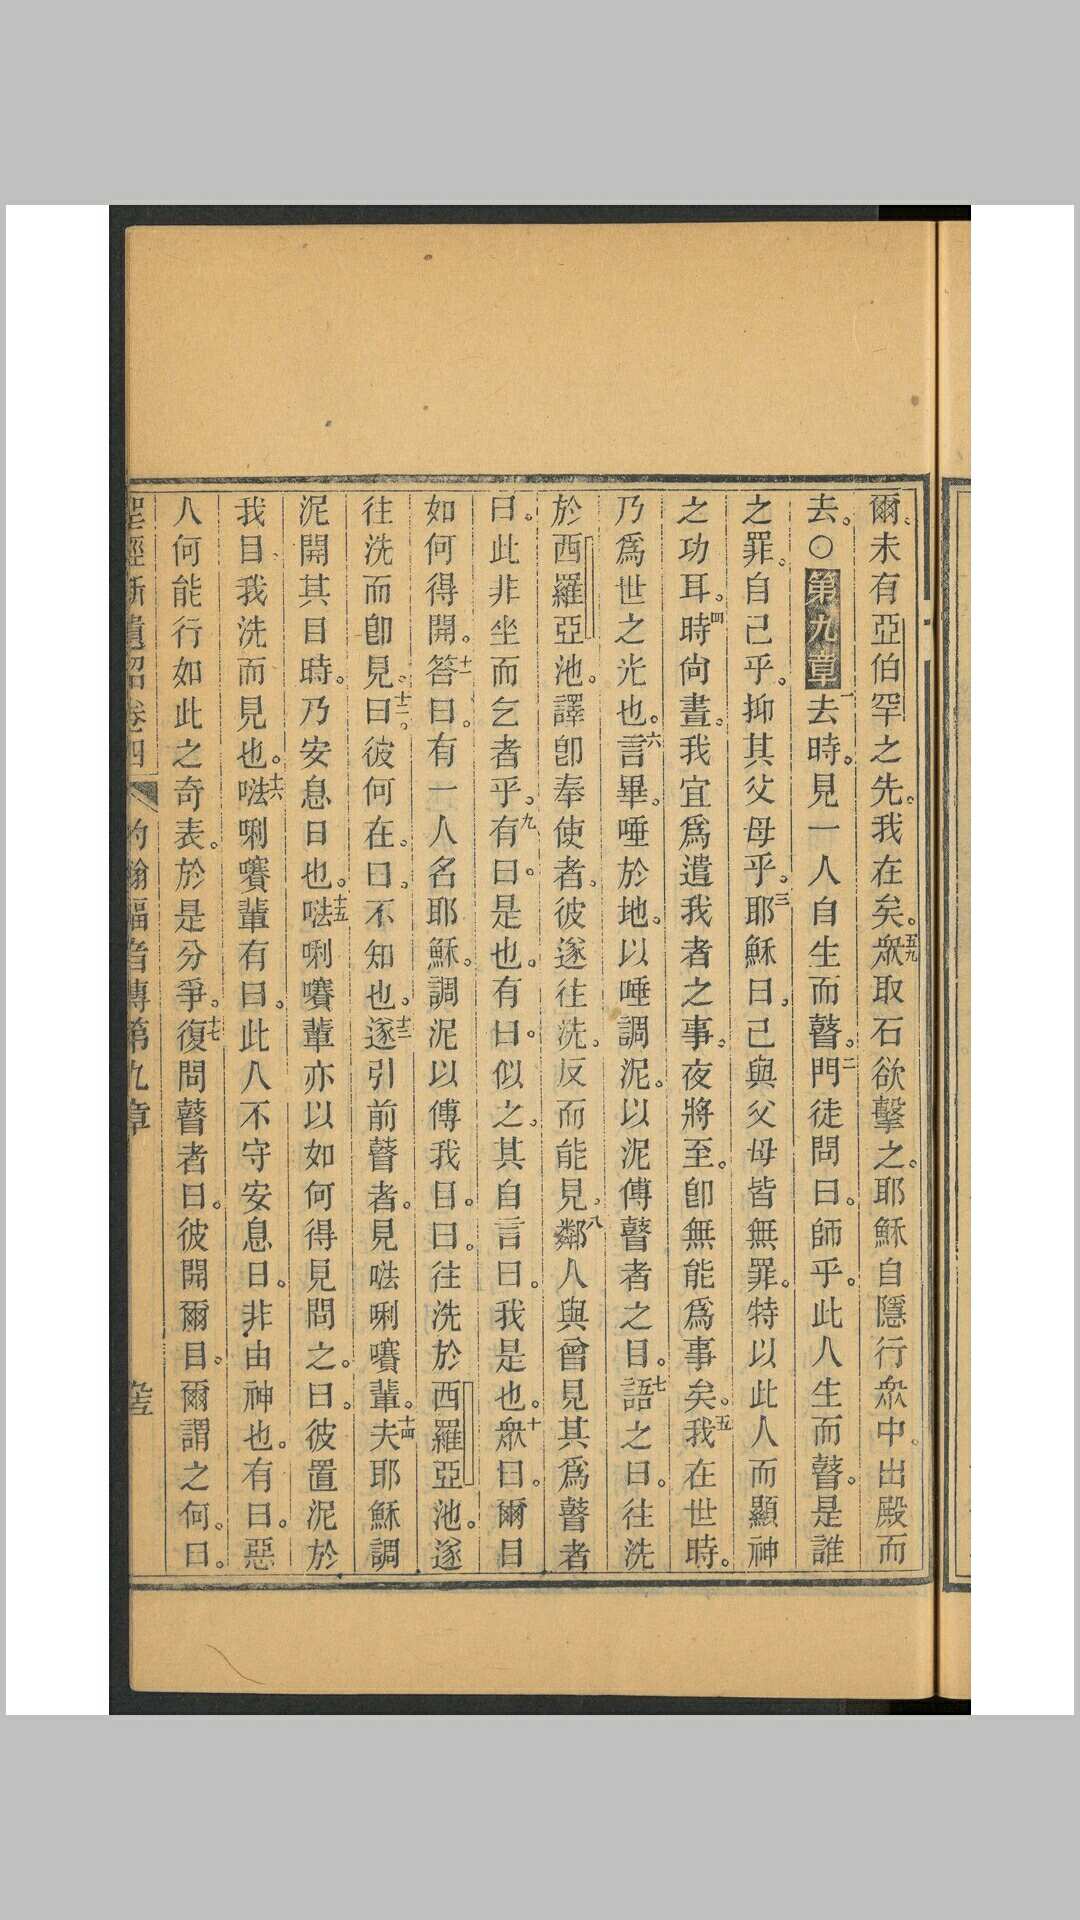 爾。未有亞伯罕之先。我在矣。五九衆取石欲擊之。耶穌自隱行衆中。出殿而
去。○第九章一去時。見一人自生而瞽。二門徒問曰。師乎。此人生而瞽。是誰
之罪。自己乎。抑其父母乎。三耶穌曰。己與父母皆無罪。特以此人而顯神
之功耳。四時尙晝。我宜爲遣我者之事。夜將至。卽無能爲事矣。五我在世時。
乃爲世之光也。六言畢。唾於地。以唾調泥。以泥傅瞽者之目。七語之曰。往洗
於西羅亞池。譯卽奉使者。彼遂往洗。反而能見。八鄰人與曾見其爲瞽者
曰。此非坐而乞者乎。九有曰。是也。有曰。似之。其自言曰。我是也。十衆曰。爾目
如何得開。十一答曰。有一人名耶穌。調泥以傅我目。曰。往洗於西羅亞池。遂
往洗而卽見。十二曰。彼何在。曰。不知也。十三遂引前瞽者。見𠵽唎㘔輩。十四夫耶穌調
泥開其目時。乃安息日也。十五𠵽唎㘔輩亦以如何得見問之。曰。彼置泥於
我目我洗而見也。十六𠵽唎㘔輩有曰。此人不守安息日。非由神也。有曰。惡
人何能行如此之奇表。於是分爭。十七復問瞽者曰。彼開爾目。爾謂之何。曰。
聖經新遺詔卷四 約翰福音傳第九章